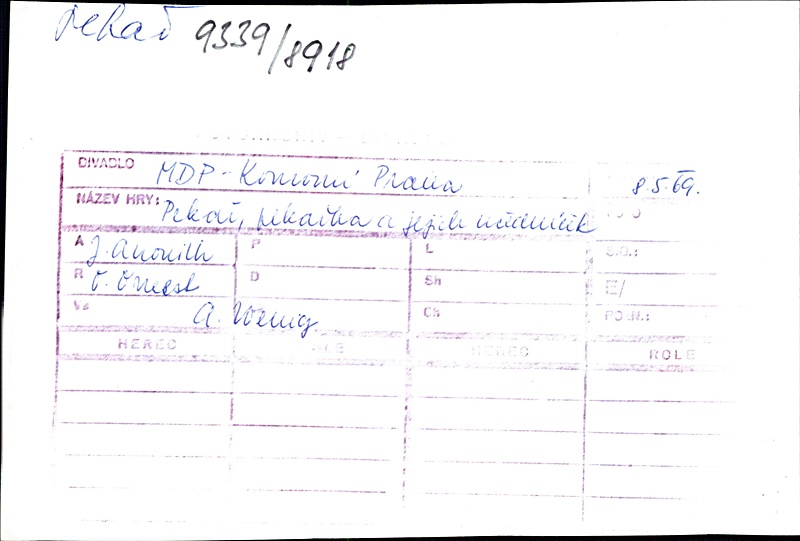 Pekař 9339/8918
DIVADLO MDP - Komorní Praha 8.5.69.
NÁZEV HRY: Pekař, pekařka a jejich učedníček
A J. Anouilh P L S.O.:
R O. Ornest D Sh E/
Vs A. Wenig Ch POZN.:
HEREC ROLE HEREC ROLE